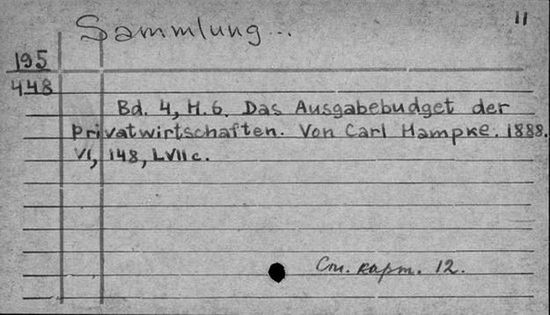 11
Sammlung...
195
448
Bd. 4, H. 6. Das Ausgabebudget der
Privatwirtschaften. Von Carl Hampke. 1888.
VI, 148, LVII c.
См. карт. 12.